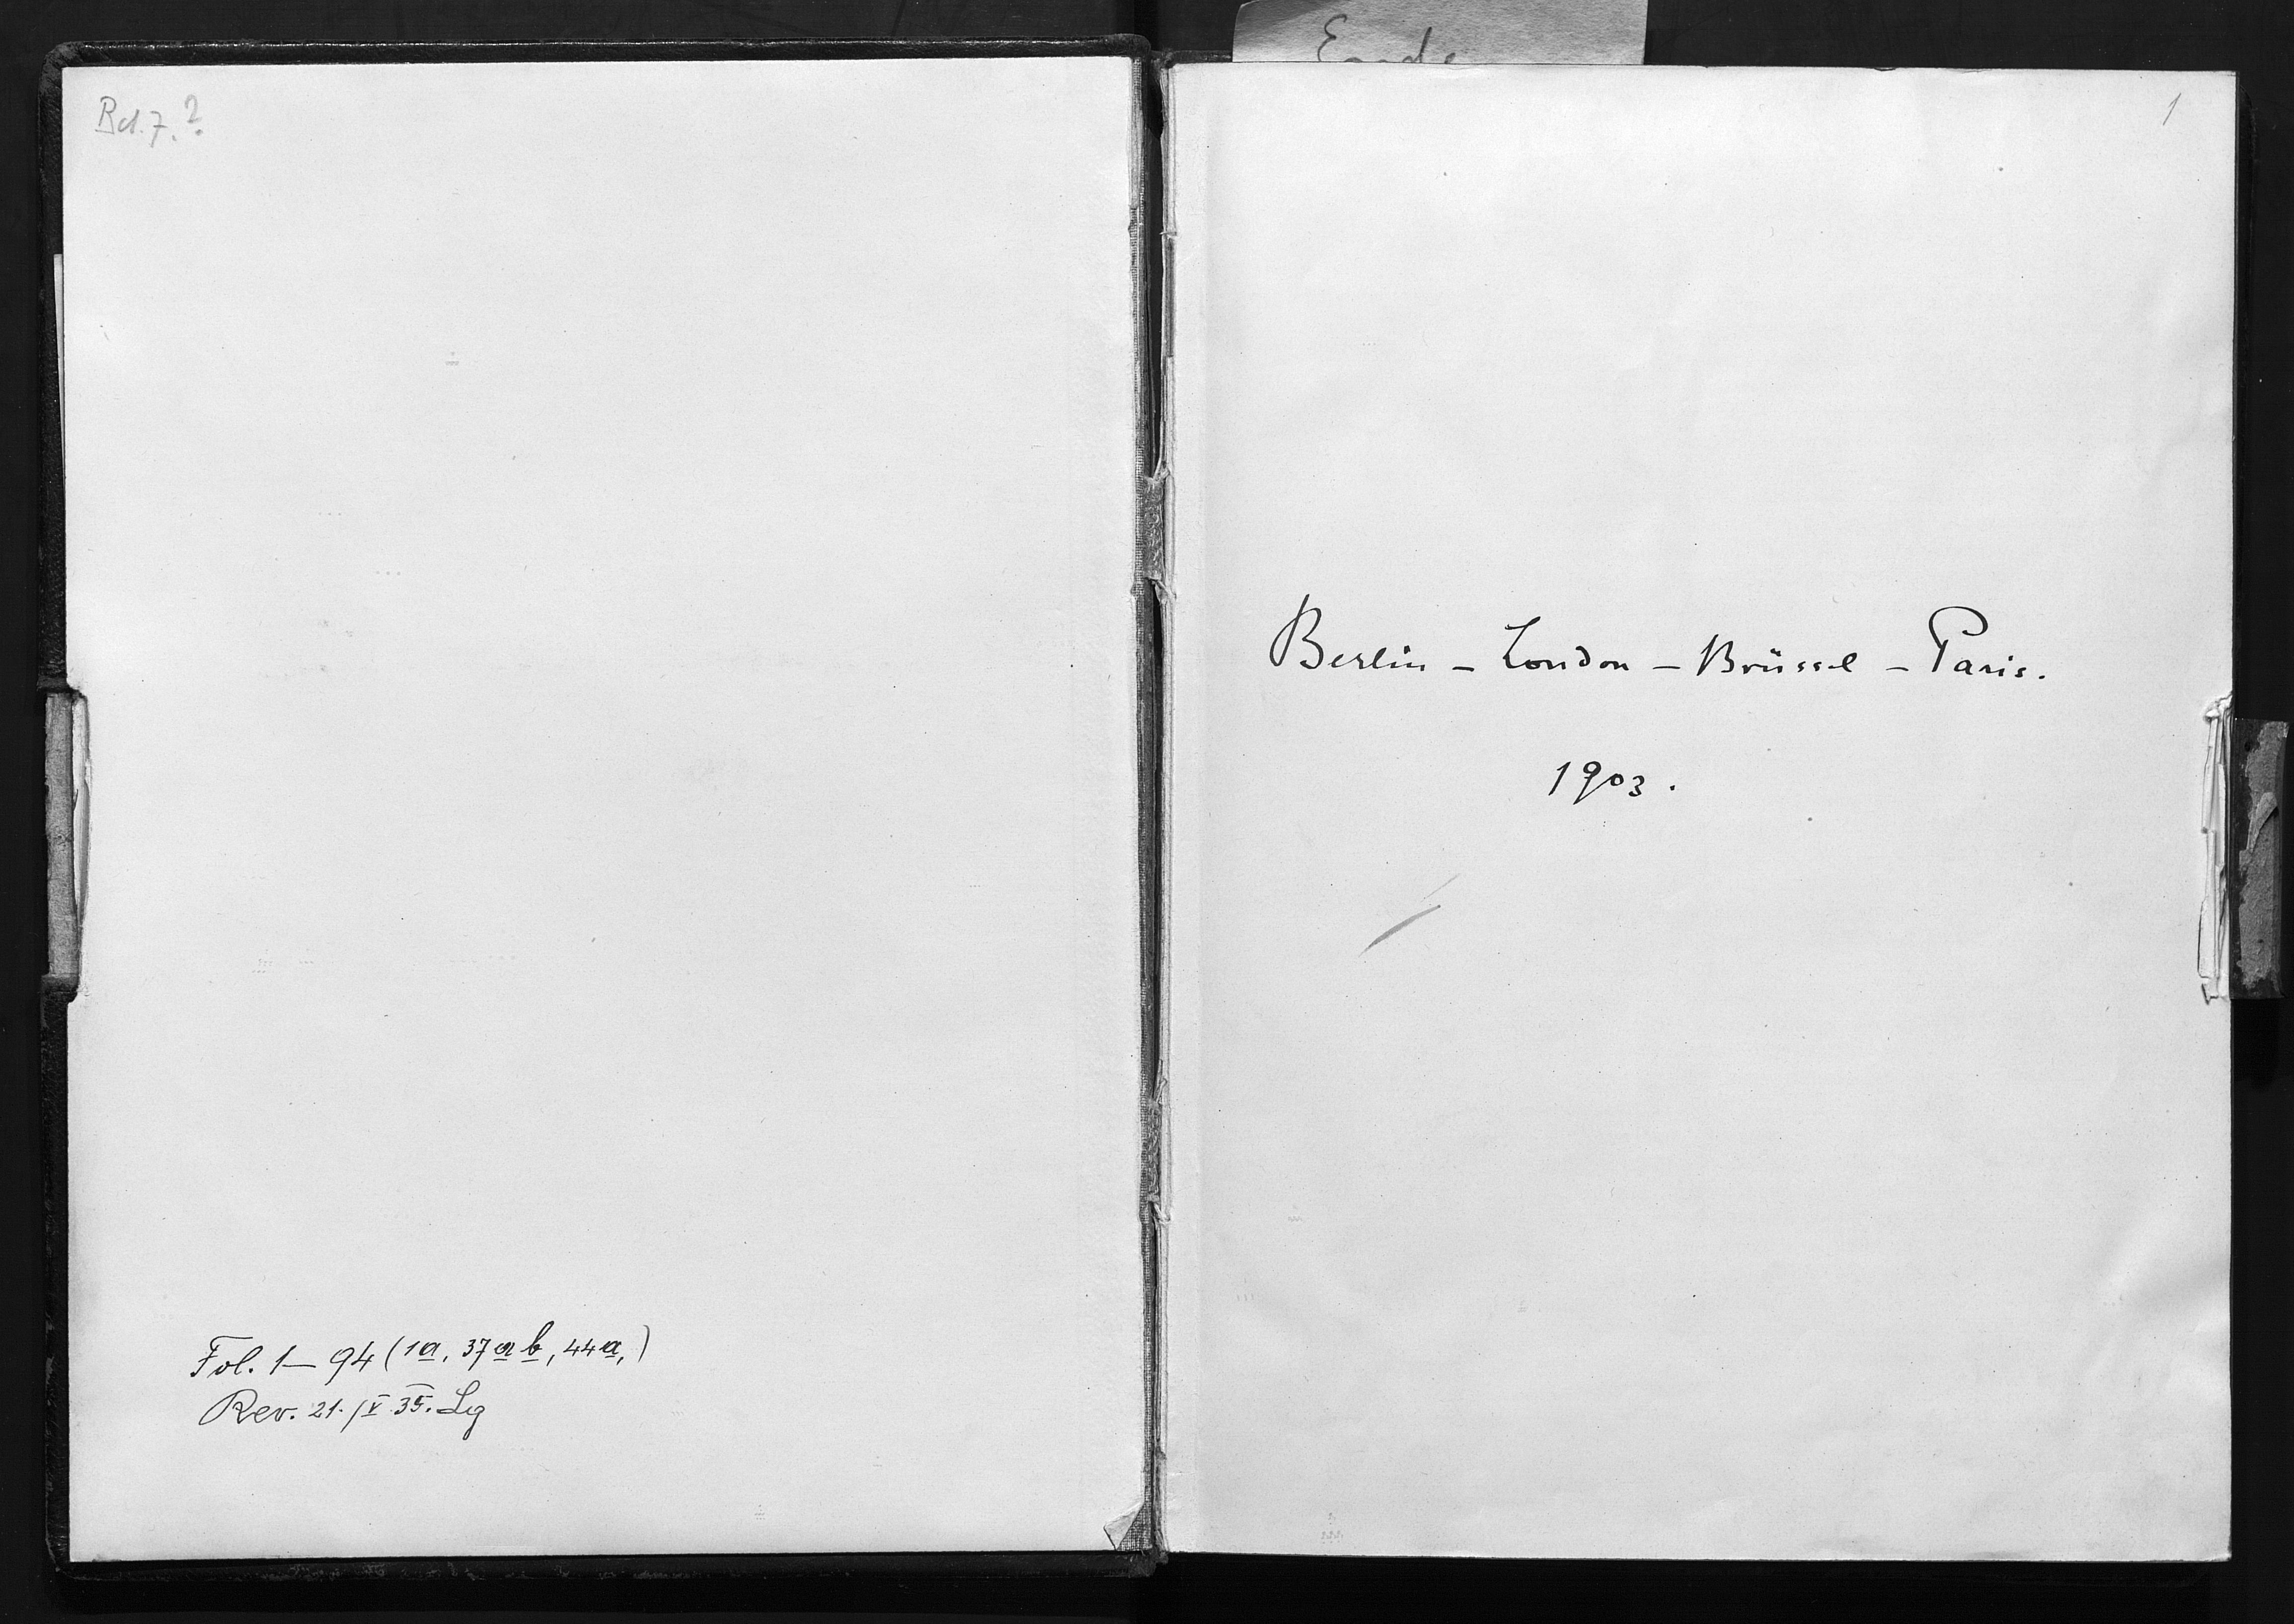 Bd. 7. ?
Fol. 1 – 94 (1a, 37a b, 44a,)
Rev. 21./V 35. Lg
Ende
1
Berlin – London – Brüssel – Paris.
1903.